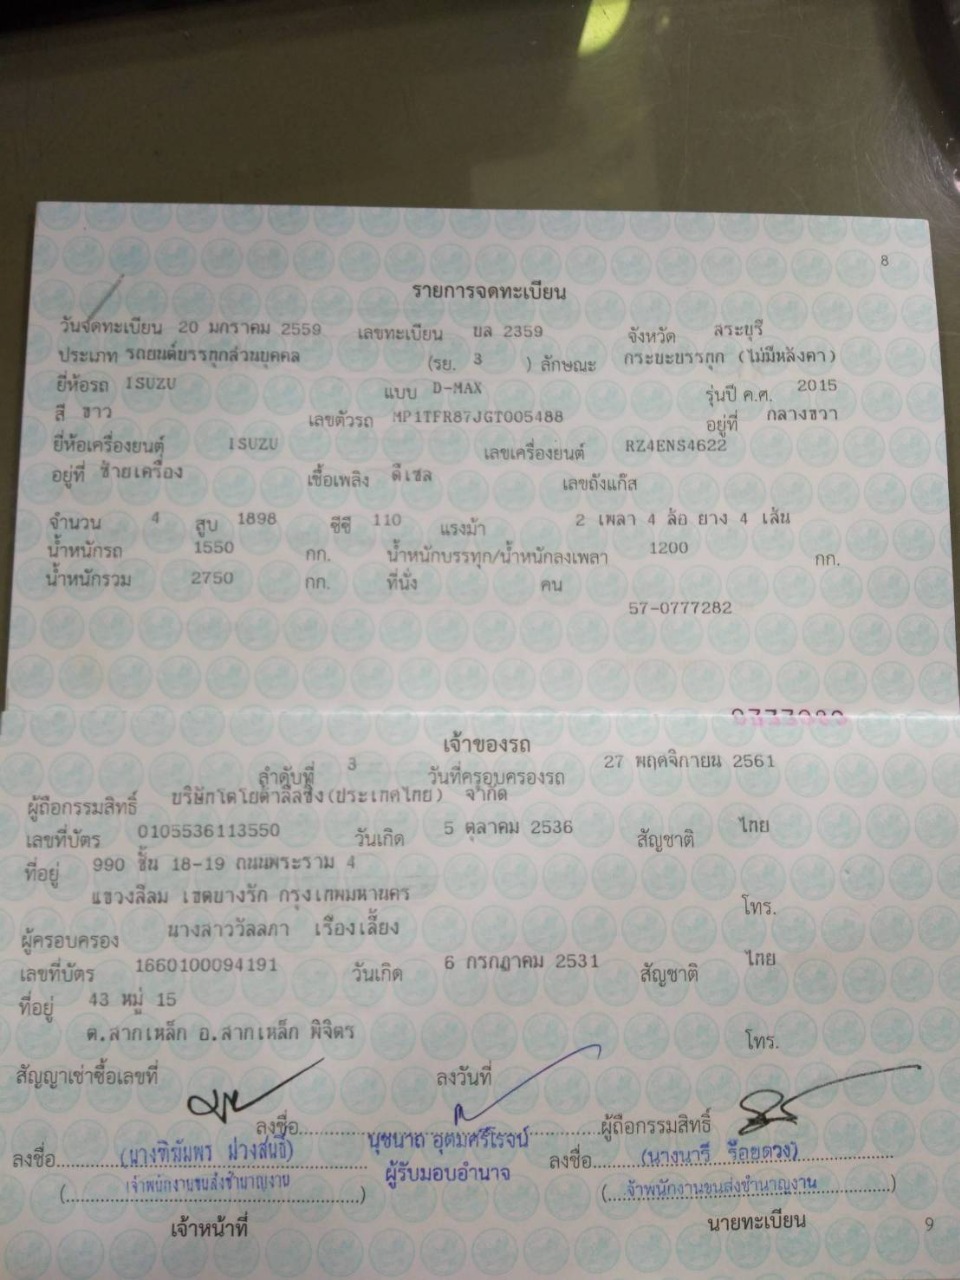 8
รายการจดทะเบียน
วันจดทะเบียน 20 มกราคม 2559 เลขทะเบียน บล 2359 จังหวัด สระบุรี
ประเภท รถยนต์บรรทุกส่วนบุคคล (รย. 3 ) ลักษณะ กระบะบรรทุก (ไม่มีหลังคา)
ยี่ห้อรถ ISUZU แบบ D-MAX รุ่นปี ค.ศ. 2015
สี ขาว เลขตัวรถ MP1TFR87JGT005488 อยู่ที่ กลางขวา
ยี่ห้อเครื่องยนต์ ISUZU เลขเครื่องยนต์ RZ4ENS4622
อยู่ที่ ซ้ายเครื่อง เชื้อเพลิง ดีเซล เลขถังแก๊ส
จำนวน 4 สูบ 1898 ซีซี 110 แรงม้า 2 เพลา 4 ล้อ ยาง 4 เส้น
น้ำหนักรถ 1550 กก. น้ำหนักบรรทุก/น้ำหนักลงเพลา 1200 กก.
น้ำหนักรวม 2750 กก. ที่นั่ง คน
57-0777282
เจ้าของรถ
ลำดับที่ 3 วันที่ครอบครองรถ 27 พฤศจิกายน 2561
ผู้ถือกรรมสิทธิ์ บริษัทโตโยต้าลีสซิ่ง(ประเทศไทย) จำกัด
เลขที่บัตร 0105536113550 วันเกิด 5 ตุลาคม 2536 สัญชาติ ไทย
ที่อยู่ 990 ชั้น 18-19 ถนนพระราม 4
แขวงสีลม เขตบางรัก กรุงเทพมหานคร โทร.
ผู้ครอบครอง นางสาววัลลภา เรืองเลี้ยง
เลขที่บัตร 1660100094191 วันเกิด 6 กรกฎาคม 2531 สัญชาติ ไทย
ที่อยู่ 43 หมู่ 15
ต.สากเหล็ก อ.สากเหล็ก พิจิตร โทร.
สัญญาเช่าซื้อเลขที่ ลงวันที่
ลงชื่อ ผู้ถือกรรมสิทธิ์
นุชนาถ อุตมศรีโรจน์
ผู้รับมอบอำนาจ
ลงชื่อ (นางทิฆัมพร ม่วงสนธิ์) ลงชื่อ (นางนารี ร้อยดวง)
(เจ้าพนักงานขนส่งชำนาญงาน) (เจ้าพนักงานขนส่งชำนาญงาน)
เจ้าหน้าที่ นายทะเบียน 9